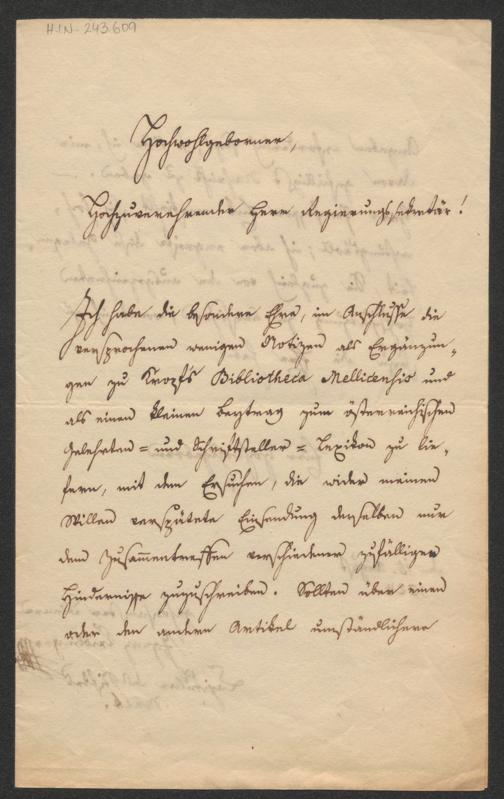 H.I.N. 243.609
Hochwohlgeborner,
Hochzuverehrender Herr Regierungssekretär!
Ich habe die besondere Ehre, im Anschlusse die
versprochenen wenigen Notizen als Ergänzun-
gen zu Kropfs Bibliotheca Mellicensis und
als einen kleinen Beytrag zum österreichischen
Gelehrten= und Schriftsteller=Lexikon zu lie-
fern, mit dem Ersuchen, die wider meinen
Willen verspätete Einsendung derselben nur
dem Zusammentreffen verschiedener zufälliger
Hindernisse zuzuschreiben. Sollten über einen
oder den andern Artikel umständlichere